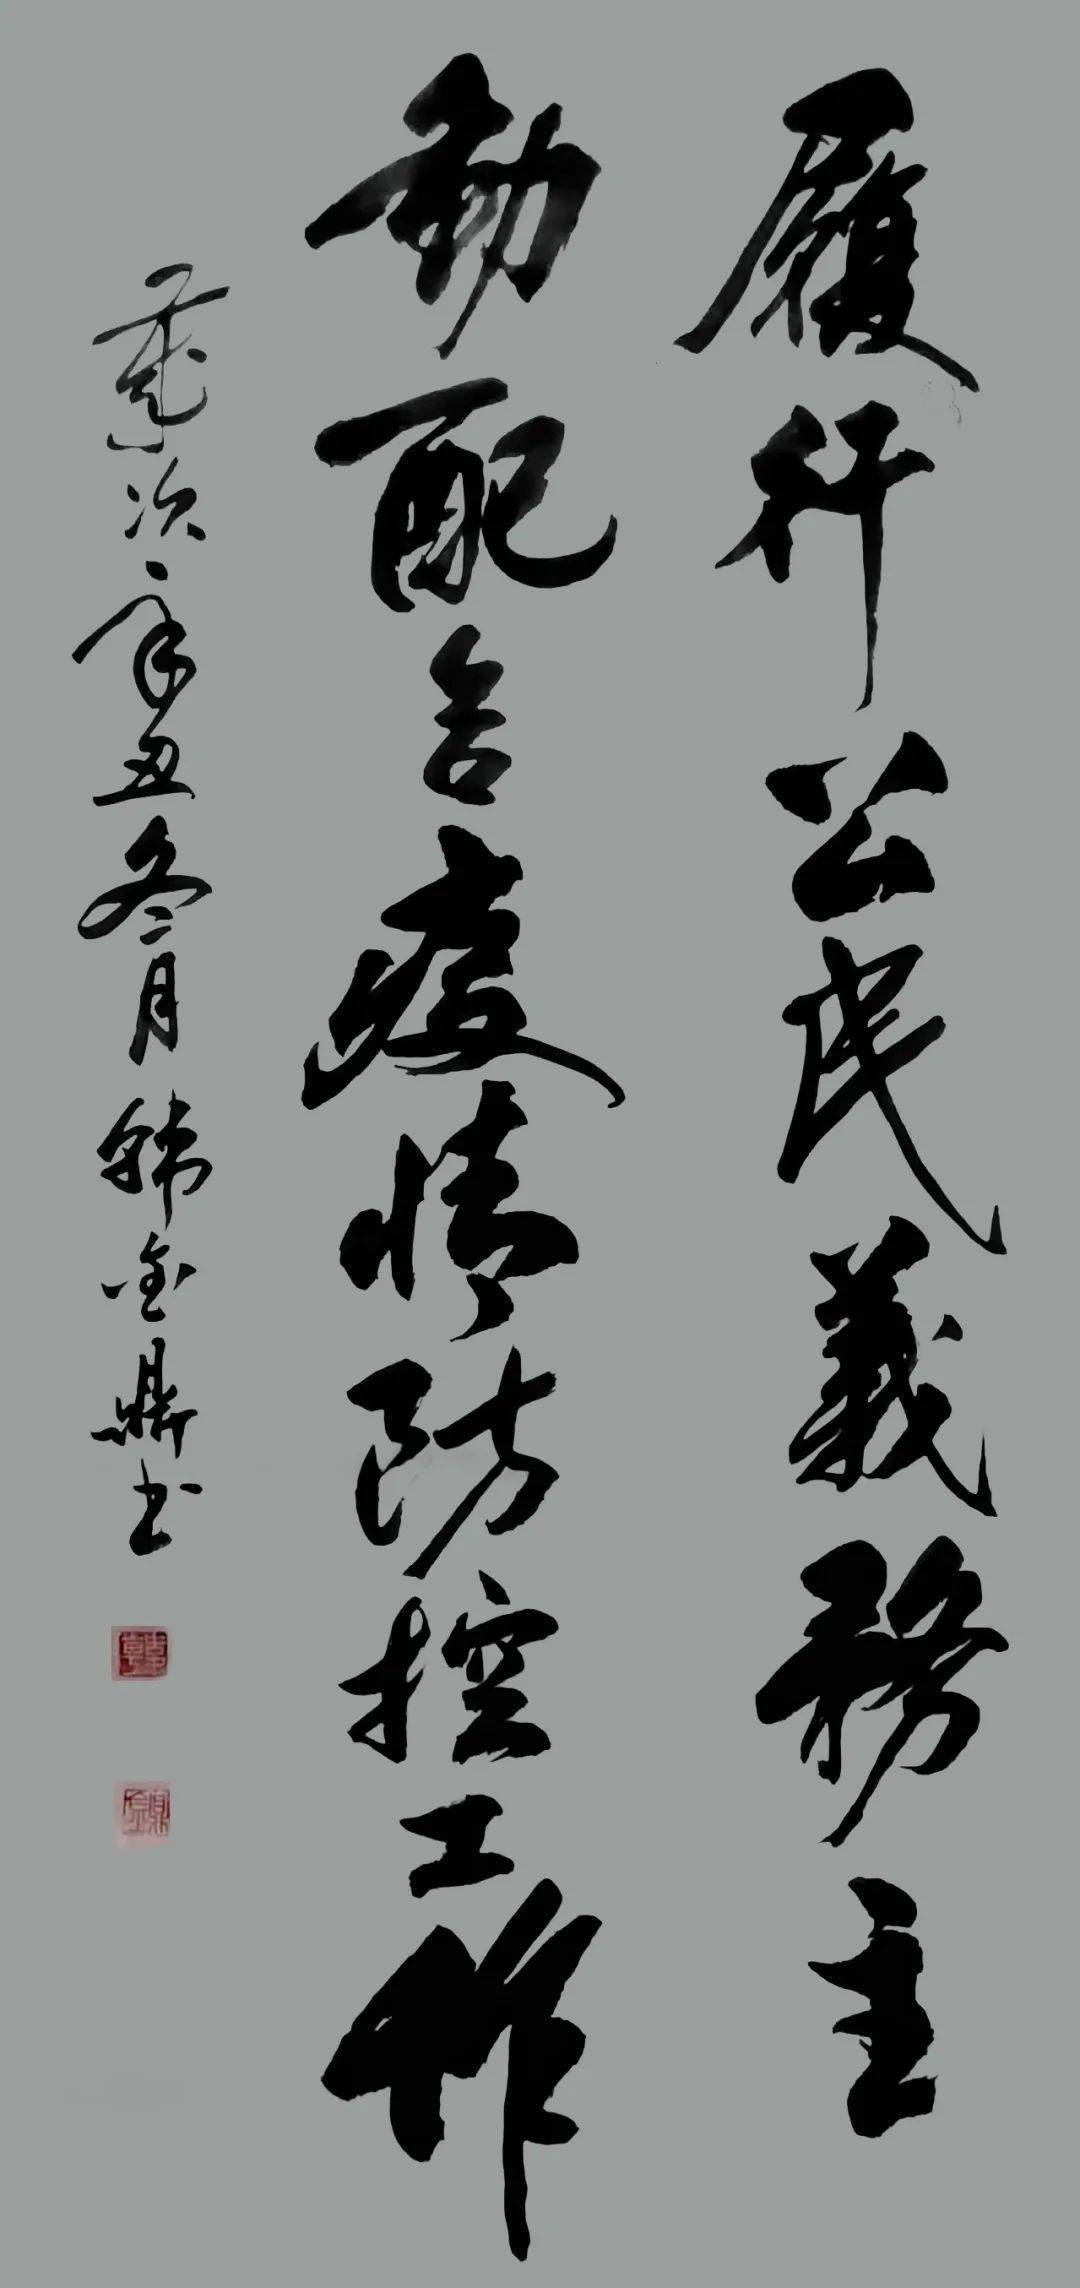 履行公民義務主
動配合疫情防控工作
歲次辛丑冬月韩金鼎书